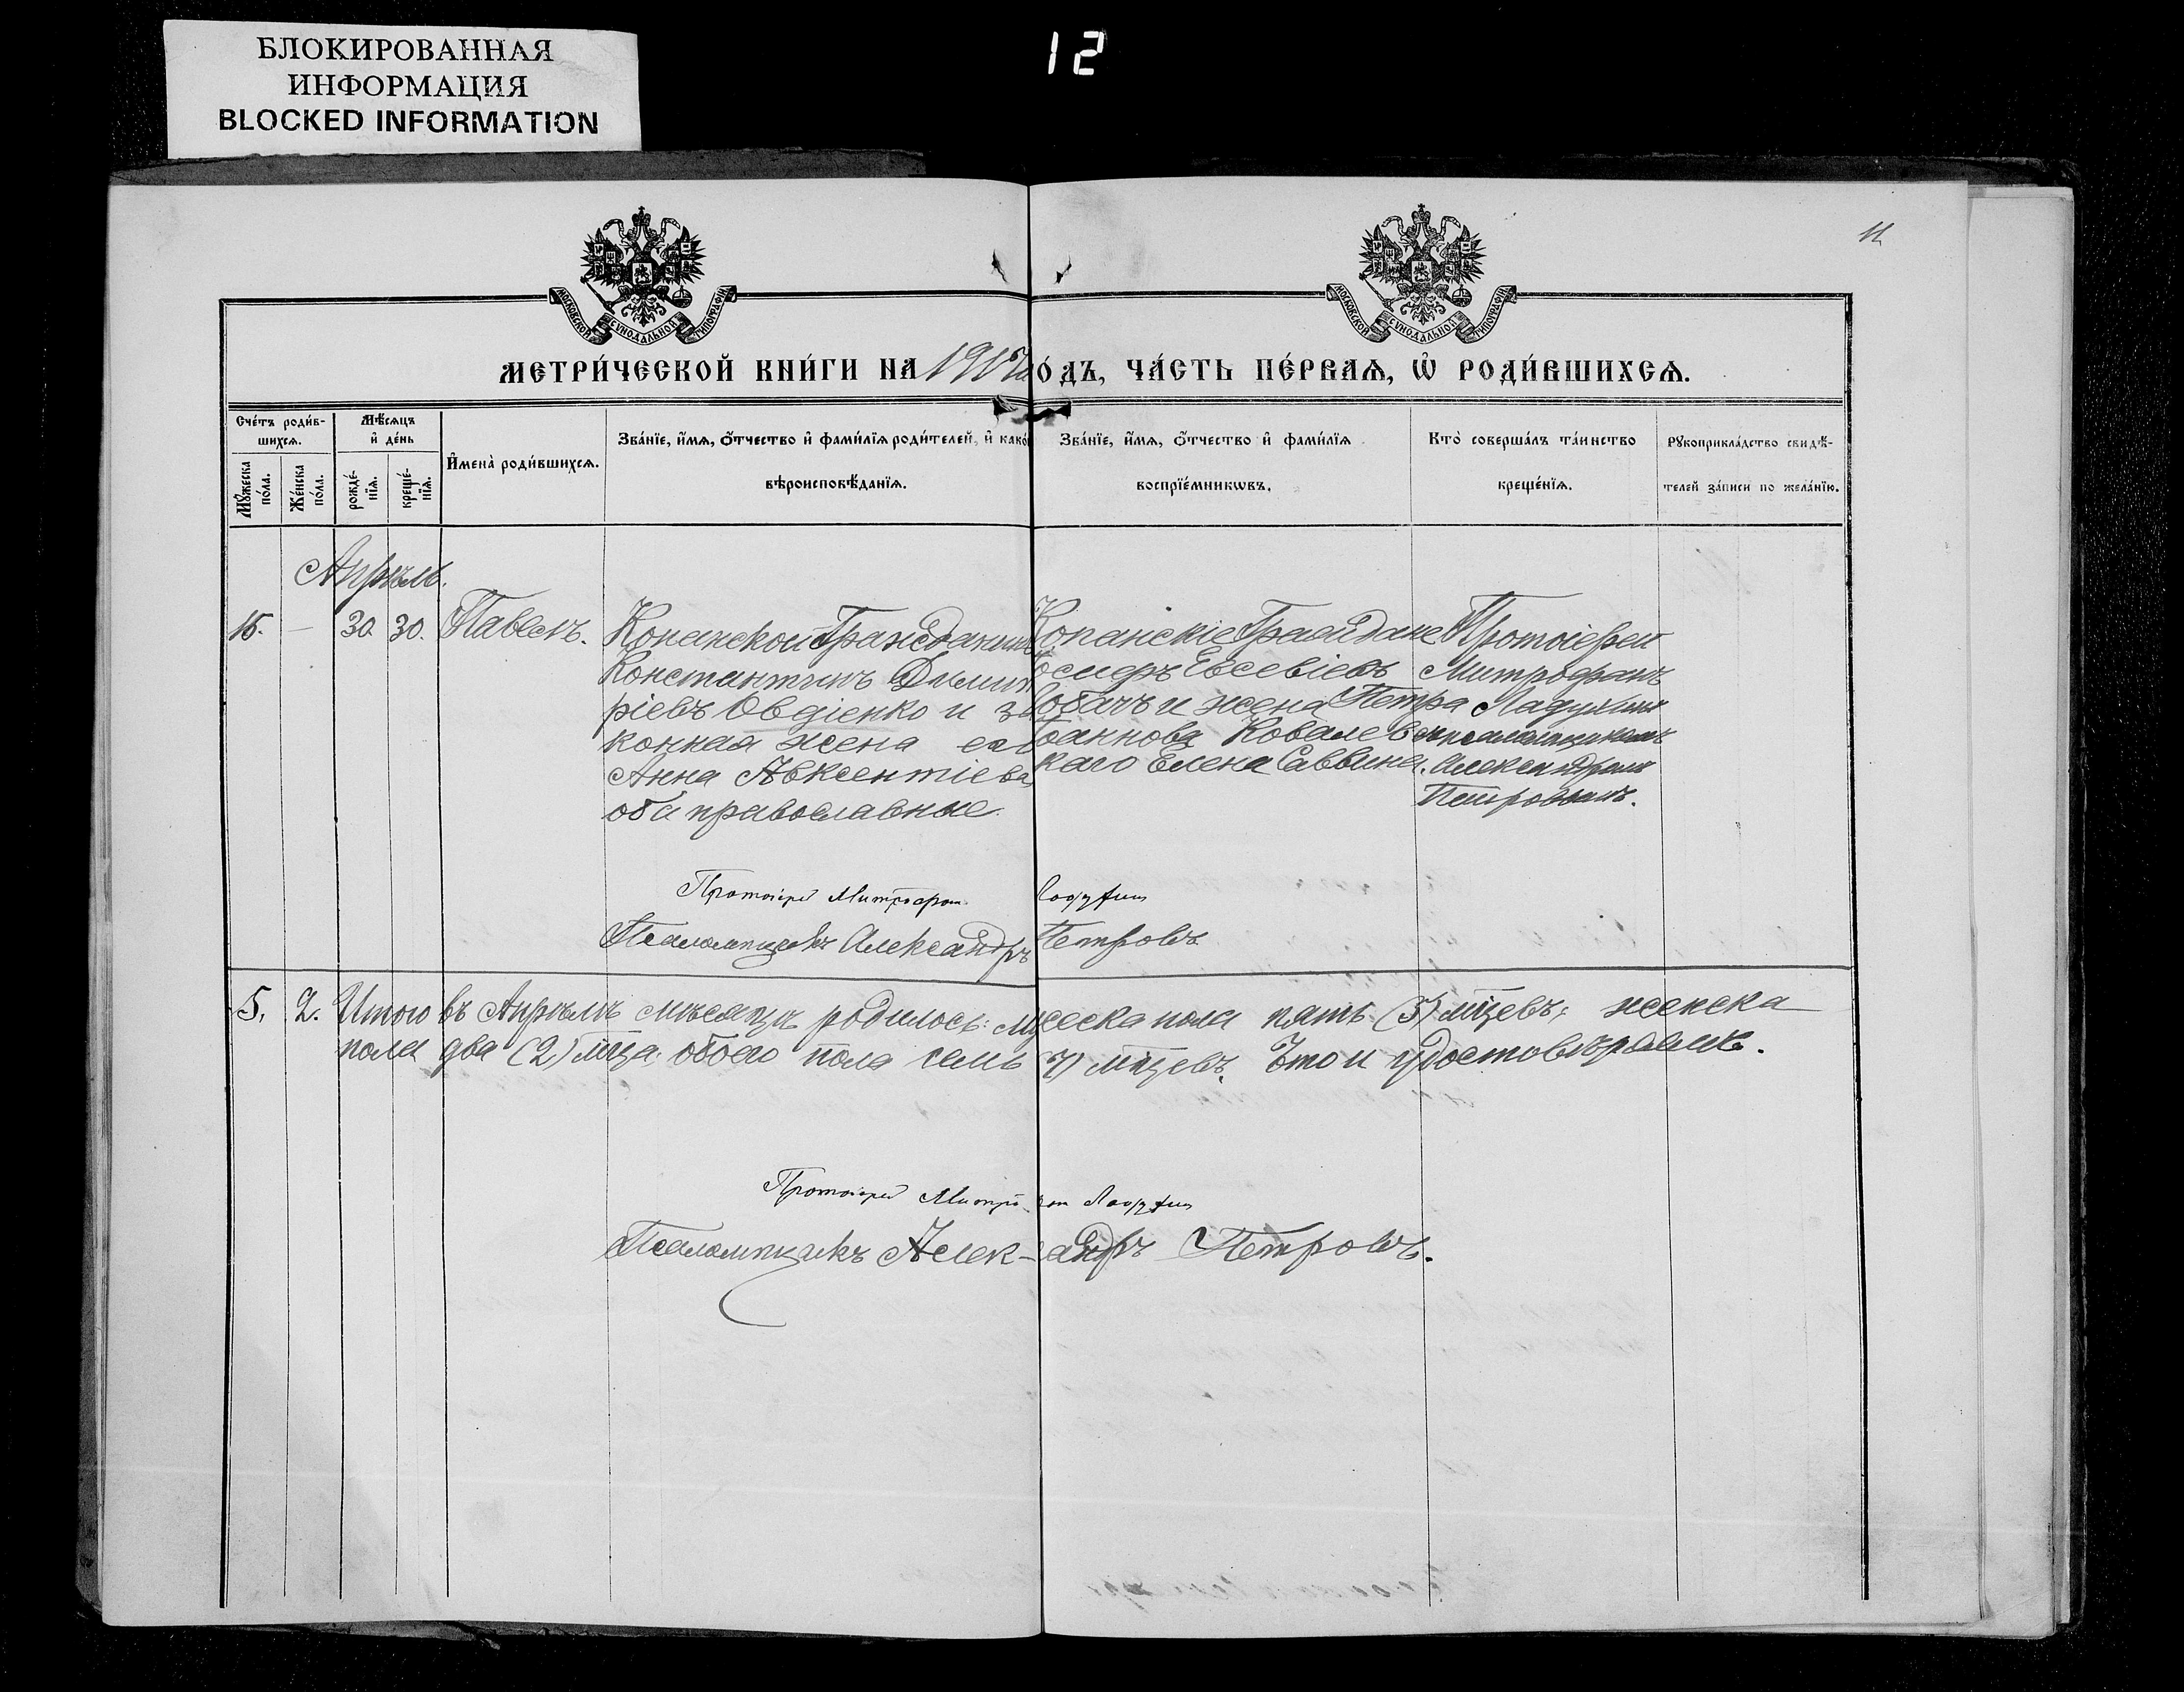 БЛОКИРОВАННАЯ
ИНФОРМАЦИЯ
BLOCKED INFORMATION
12
11
МОСКОВСКОЙ СУНОДАЛЬНОЙ ТИПОГРАФІИ
МОСКОВСКОЙ СУНОДАЛЬНОЙ ТИПОГРАФІИ
МЕТРИ́ЧЕСКОЙ КНИ́ГИ НА 1917 го́дъ, ЧА́СТЬ ПЕ́РВАѦ, Ѡ҆ РОДИ́ВШИХСѦ.
Сче́тъ роди́в-
шихсѧ.
Мꙋ́жеска по́ла.
Же́нска по́ла.
Мѣ́сѧцъ
и҆ де́нь
рожде́-нїѧ.
креще́-нїѧ.
И҆мена̀ роди́вшихсѧ.
Зва́нїе, и҆́мѧ, ѻ҆́тчество и҆ фами́лїѧ роди́телей, и҆ како́
вѣроисповѣ́данїѧ.
Зва́нїе, и҆́мѧ, ѻ҆́тчество и҆ фами́лїѧ
воспрїе́мникѡвъ.
Кто̀ соверша́лъ та́инство
креще́нїѧ.
Рꙋкоприкла́дство свидѣ́-
телей за́писи по жела́нїю.
Апрѣль.
15. — 30. 30. Павелъ.
Копанской Гражданинъ
Константинъ Димит
ріевъ Овдіенко и за
конная жена его
Анна Авксентіева,
оба православные.
Копанскіе Граждане
Іосифъ Евсевіевъ
и жена Петра
Іоаннова Ковалевс
каго Елена Саввина.
Протоіерей
Митрофанъ
Ладухинъ
съ псаломщикомъ
Александромъ
Петровымъ.
Протоіерей Митрофан Ладухин
Псаломщикъ Александръ Петровъ
5. 2. Итого въ Апрѣлѣ мѣсяцѣ родилось: мужеска пола пять (5) мцевъ; женска
пола два (2) мца, обоего пола семь (7) мцевъ. Что и удостовѣряемъ.
Протоіерей Митрофан Ладухин
Псаломщикъ Алек-сандръ Петровъ.